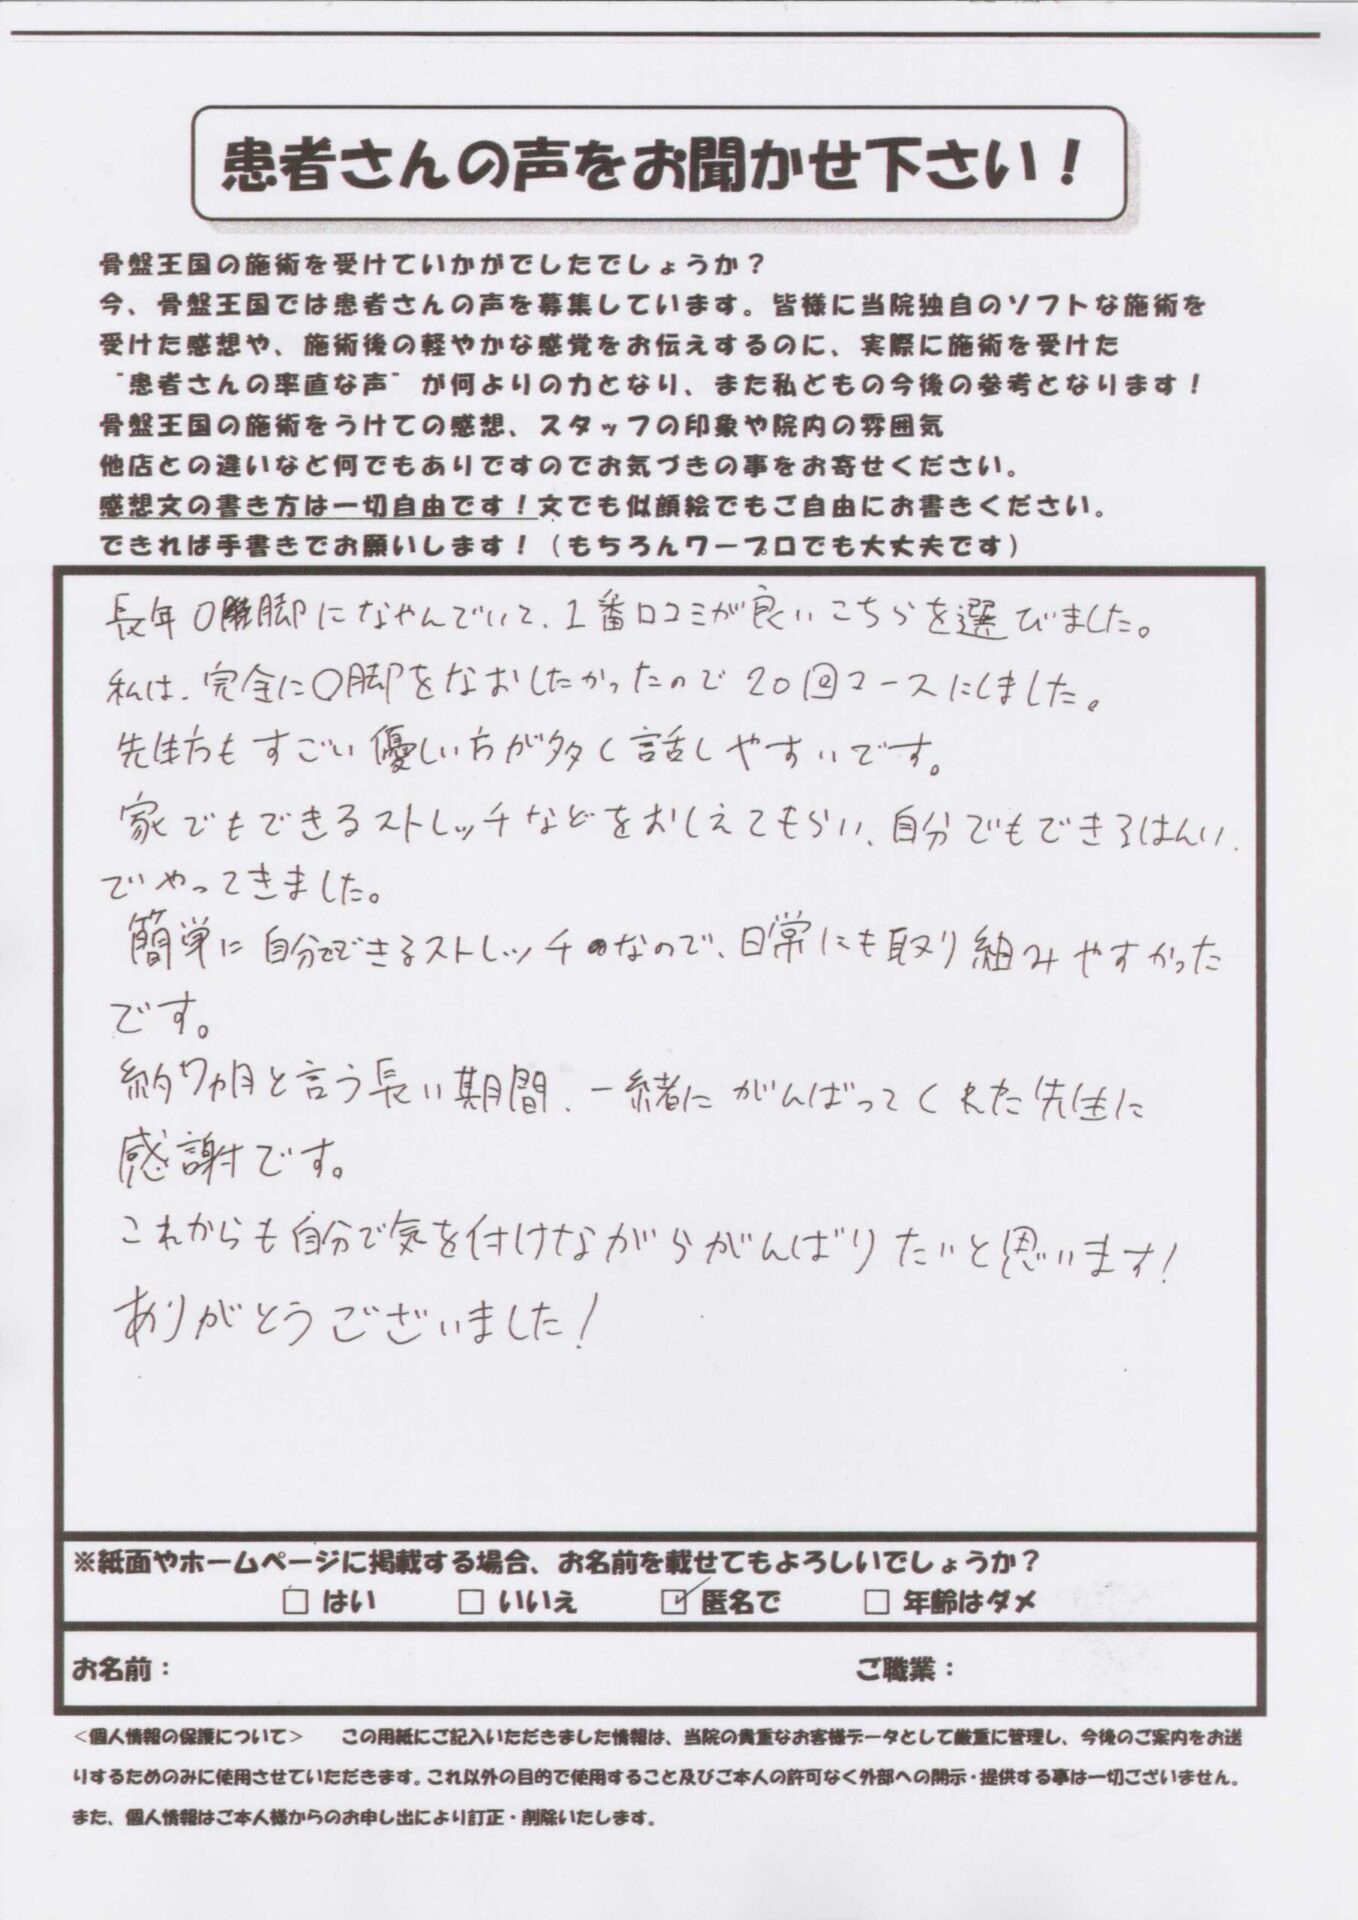 患者さんの声をお聞かせ下さい！
骨盤王国の施術を受けていかがでしたでしょうか？
今、骨盤王国では患者さんの声を募集しています。皆様に当院独自のソフトな施術を
受けた感想や、施術後の軽やかな感覚をお伝えするのに、実際に施術を受けた
“患者さんの率直な声”が何よりの力となり、また私どもの今後の参考となります！
骨盤王国の施術をうけての感想、スタッフの印象や院内の雰囲気
他店との違いなど何でもありですのでお気づきの事をお寄せください。
感想文の書き方は一切自由です！文でも似顔絵でもご自由にお書きください。
できれば手書きでお願いします！（もちろんワープロでも大丈夫です）
長年O脚になやんでいて、1番口コミが良いこちらを選びました。
私は、完全にO脚をなおしたかったので20回コースにしました。
先生方もすごい優しい方が多く話しやすいです。
家でもできるストレッチなどをおしえてもらい、自分でもできるはんい
でやってきました。
簡単に自分でできるストレッチなので、日常にも取り組みやすかった
です。
約7ヵ月と言う長い期間、一緒にがんばってくれた先生に
感謝です。
これからも自分で気を付けながらがんばりたいと思います！
ありがとうございました！
※紙面やホームページに掲載する場合、お名前を載せてもよろしいでしょうか？
□ はい □ いいえ ☑ 匿名で □ 年齢はダメ
お名前： ご職業：
＜個人情報の保護について＞ この用紙にご記入いただきました情報は、当院の貴重なお客様データとして厳重に管理し、今後のご案内をお送
りするためのみに使用させていただきます。これ以外の目的で使用すること及びご本人の許可なく外部への開示・提供する事は一切ございません。
また、個人情報はご本人様からのお申し出により訂正・削除いたします。